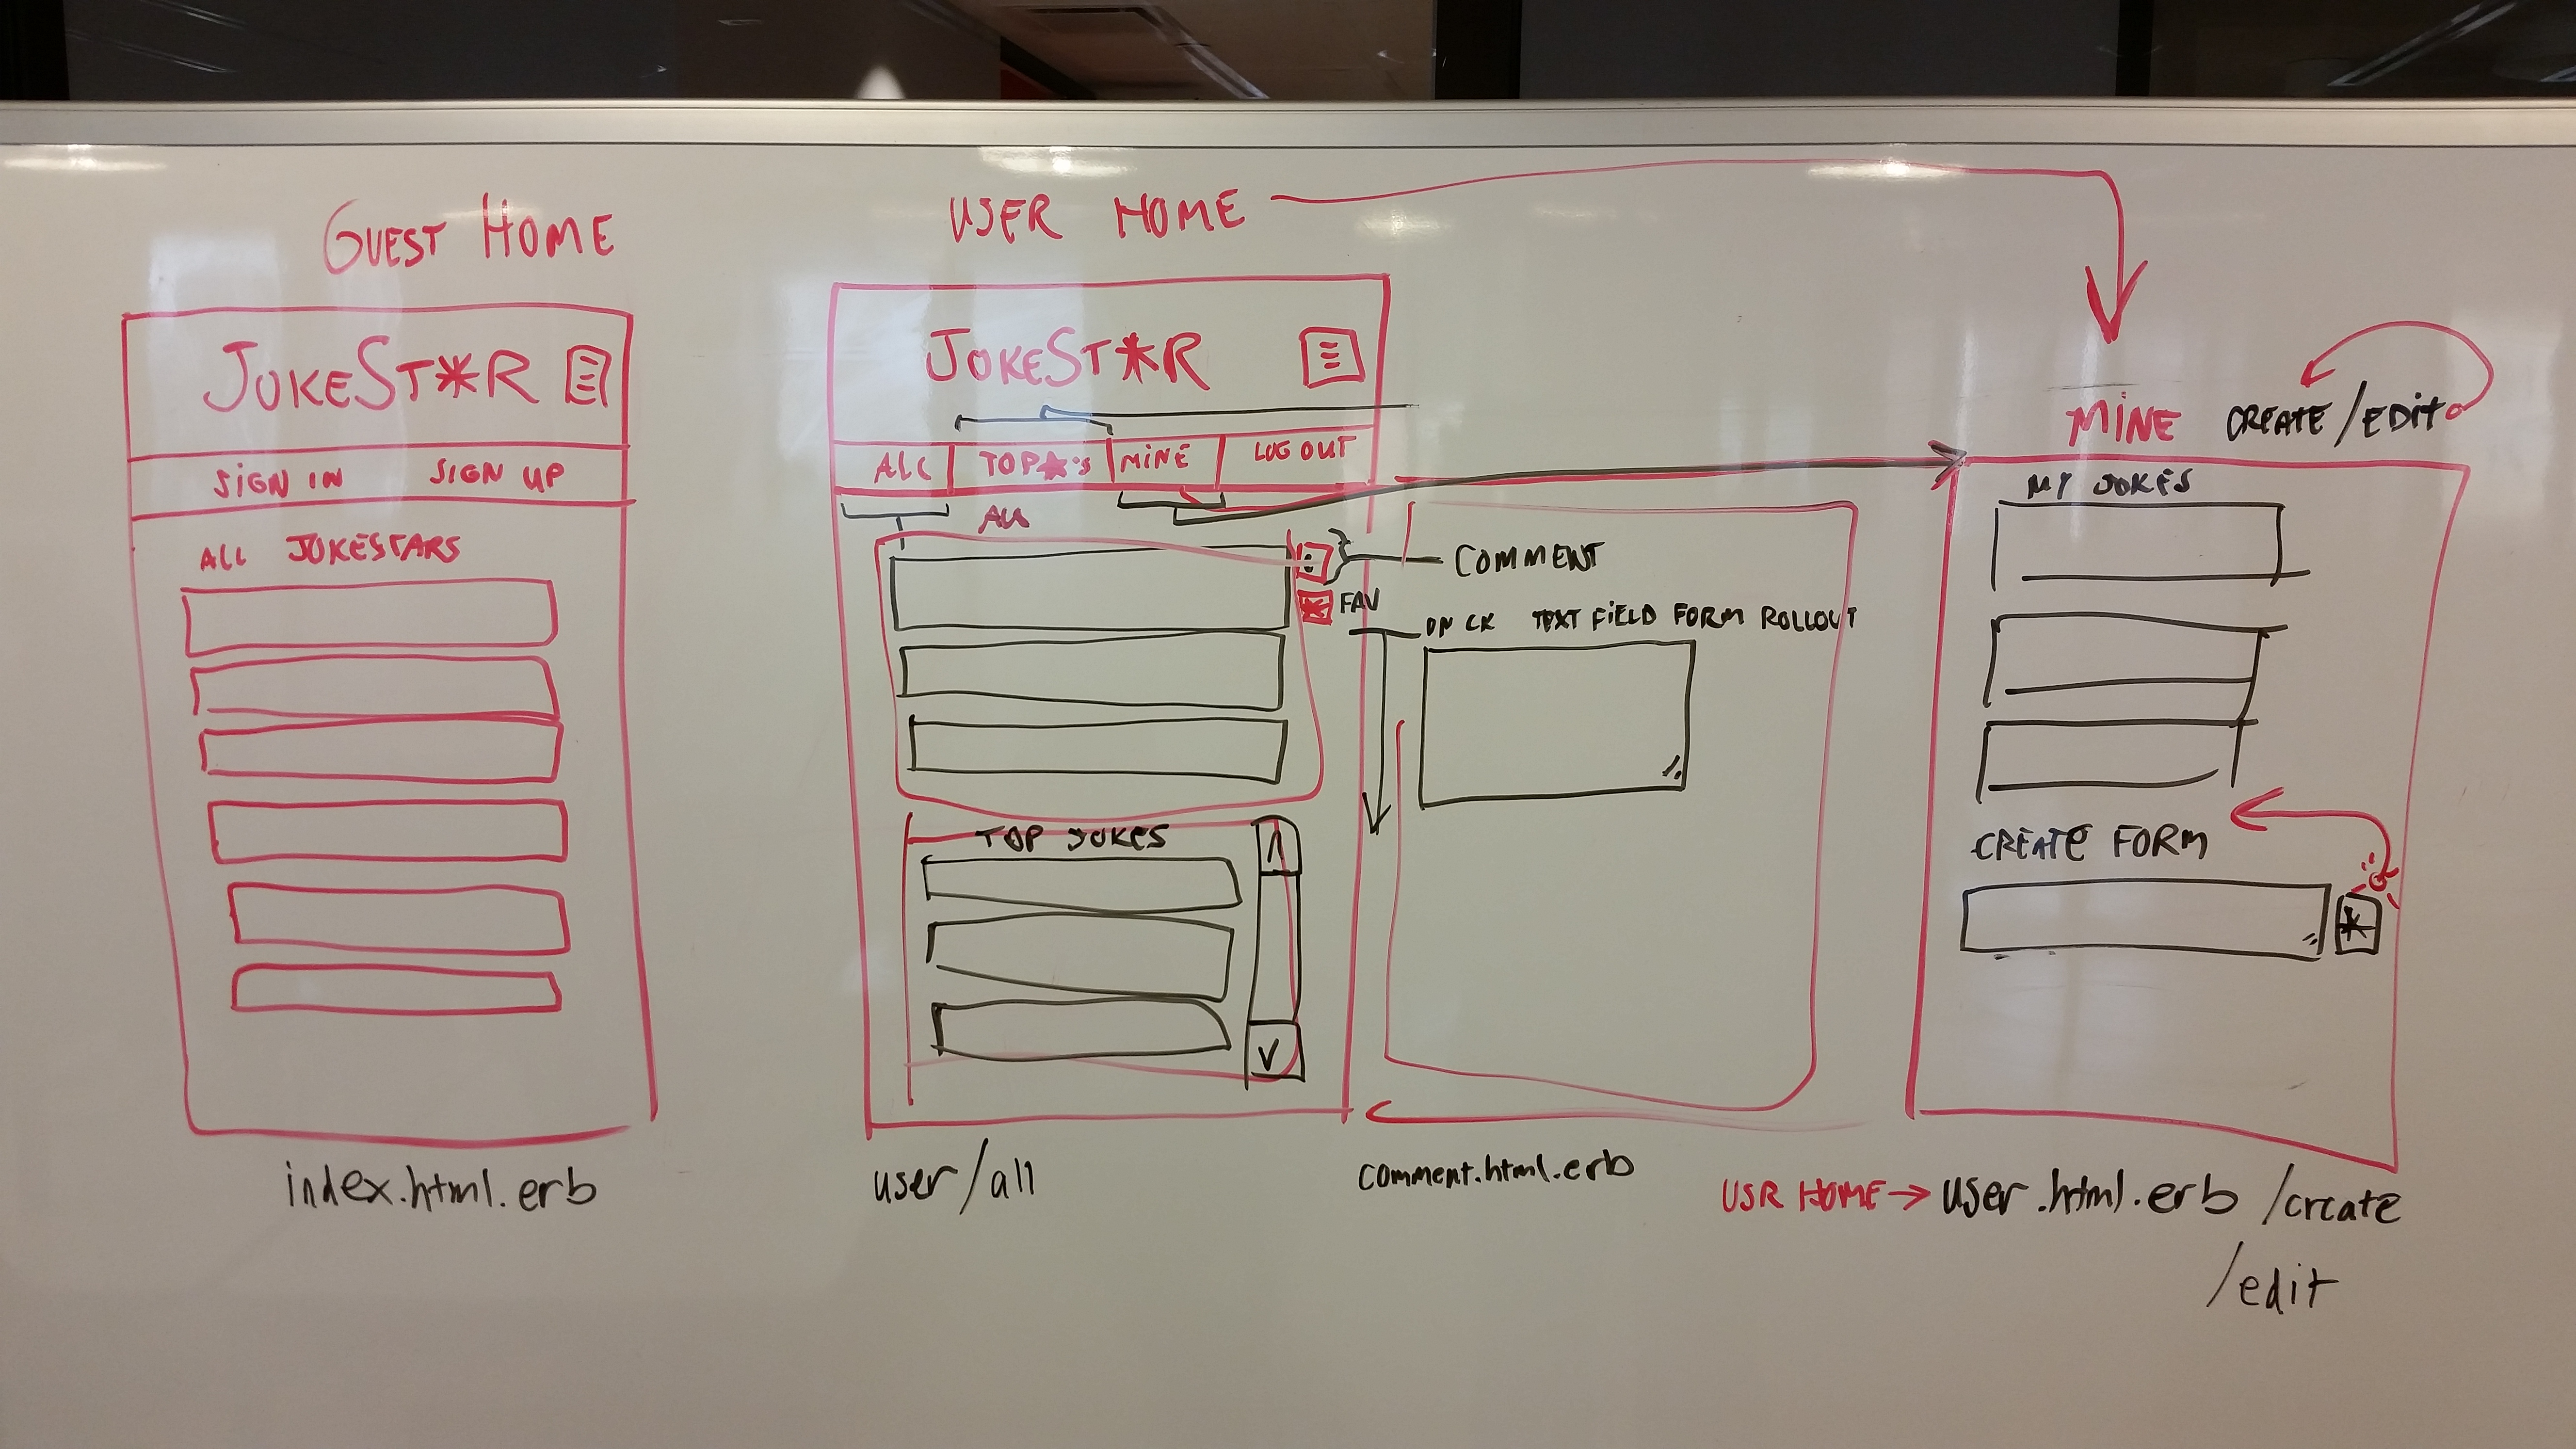 GUEST HOME
JOKEST*R
SIGN IN SIGN UP
ALL JOKESTARS
index.html.erb
USER HOME
JOKEST*R
ALL TOP*'s MINE LOG OUT
ALL
COMMENT
FAV
ON CK TEXT FIELD FORM ROLLOUT
TOP JOKES
user/all
comment.html.erb
MINE CREATE/EDIT
MY JOKES
CREATE FORM
*
USR HOME → user.html.erb /create
/edit